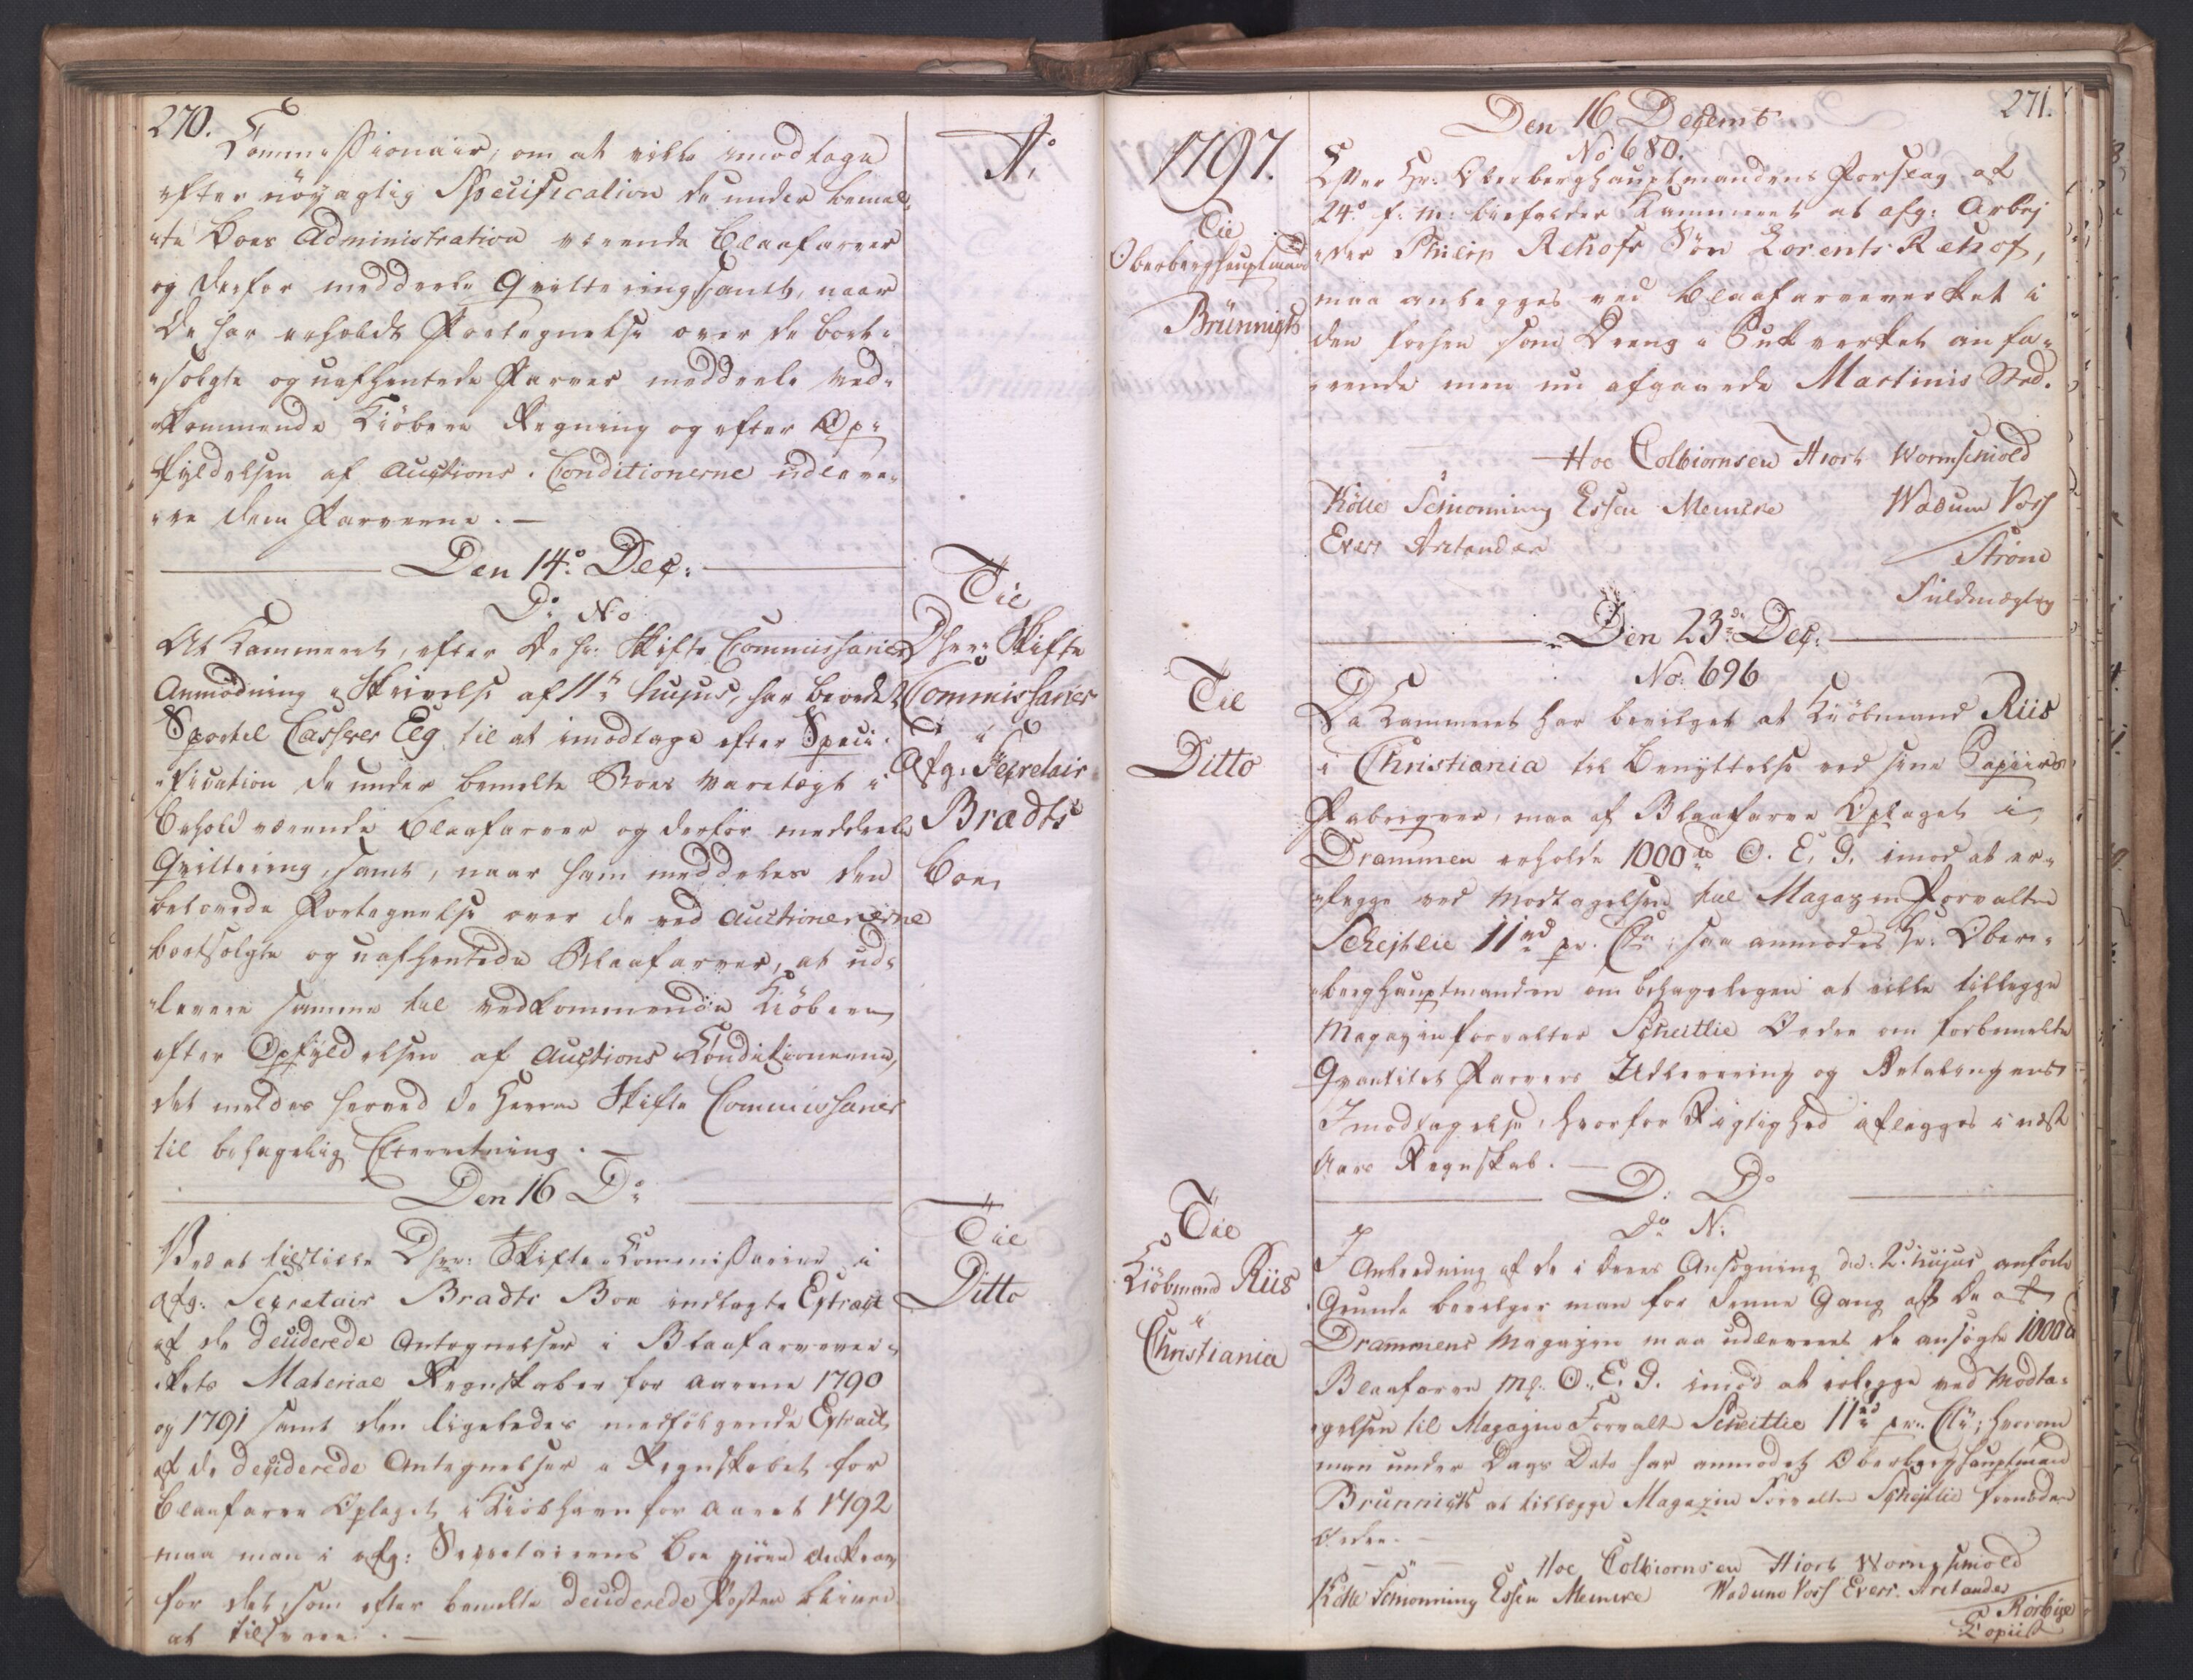 270.
Commissionair, om at ville imodtage
efter nöyagtig Specification de under bemel¬
te Boes Administration værende Blaafarver
og derfor meddeele Qvitteering samt, naar
De har erholdt Fortegnelse over de bort¬
solgte og uafhentede Farver meddeele Ved¬
kommende Kiöbere Regning og efter Op¬
fyldelsen af Auctions-Conditionerne udleve¬
re dem Farverne. —
Den 14de Dec:
Do No
At Kammeret, efter De Hr: Skifte Commissariers
Anmodning i Skrivelse af 11te hujus, har beordret
Sportel Casserer Elg til at imodtage efter Speci¬
fication de under bemelte Boes Varetægt i
Behold værende Blaafarver og derfor meddeele
Qvitteering, samt, naar ham meddeles den
belovede Fortegnelse over de ved Auctionererne
bortsolgte og uafhentede Blaafarver, at ud¬
levere samme til vedkommende Kiöbere,
efter Opfyldelsen af Auctions Conditionerne,
det meldes herved De Herrer Skifte Commissarier
til behagelig Efterretning. —
Den 16 Do
Ved at tilstille Dhrr: Skifte-Commissairer i
afg: Secretair Bradts Boe indlagte Extract
af de deciderede Antegnelser i Blaafarvever¬
kets Material Regnskaber for Aarene 1790
og 1791 samt den ligeledes medfölgende Extract
af de deciderede Antegnelser i Regnskabet for
Blaafarve Oplaget i Kiöbhavn for Aaret 1792
maa man i afg: Secretairens Boe giöre Indkrav
for det, som efter bemelte deciderede Poster bliver
at tilsvare. —
Ao
Til
Dherr Skifte
Commissarier
i
Afg: Secretair
Bradts
Boe,
Til
Ditto
1797.
Til
Oberberghauptmand
Brünnigts
Til
Ditto
Til
Kiöbmand Riis
i
Christiania
271.
Den 16 Decemb
No 680.
Efter Hr: Oberberghauptmandens Forslag af
24de f: M: bifalder Kammeret at afg: Arbej¬
der Philip Rehofs Sön Lorents Rehof,
maa anlegges ved Blaafarveverket i
den forhen som Dreng i Pukverket anfa¬
rende men nu afgaaede Martinis Sted.
Hoe Colbiornsen Hiort Wormskiold
Kölle Schionning Essen Meincke Wadum Voss
Evers Arctander
Ström
Fuldmægtig
Den 23de Dec:
No. 696
Da Kammeret har bevilget at Kiöbmand Riis
i Christiania til Benyttelse ved sine Papiirs
Fabriqver, maa af Blaafarve Oplaget i
Drammen erholde 1000 lb O. E. G. imod at er¬
legge ved Modtagelsen til Magazin Forvalter
Schejtlie 11 rd pr. C lb; saa anmodes Hr: Ober¬
berghauptmanden om behageligen at ville tillegge
Magazinforvalter Scheitlie Ordre om forbemelte
Qvantitet Farvers Udlevering og Betalingens
Imodtagelse, hvorfor Rigtighed aflegges i næste
Aars Regnskab. —
D. Do
Do N:
I Anledning af de i Deres Ansögning ded: 2d hujus anförte
Grunde bevilger man for denne Gang at De af
Drammens Magazin maa udleveres de ansögte 1000 lb
Blaafarve Mk: O. E. G. imod at erlegge ved Modta¬
gelsen til Magazin Forvalter Scheitlie 11 rd pr. C lb; hvorom
man under Dags Dato har anmodet Oberberghauptmand
Brunnichs at tillegge Magazin Forvalter Schejtlie fornöden
Ordre. —
Hoe Colbiornsen Hiort Wormskiold
Kölle Schionning Essen Meincke Wadum Voss Evers. Arctander
Rörbye
Copiist